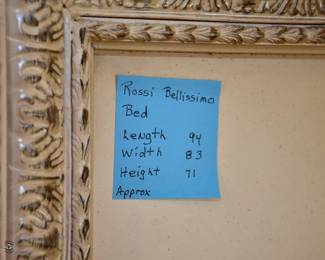 Rossi Bellissimo
Bed
Length 94
Width 83
Height 71
Approx